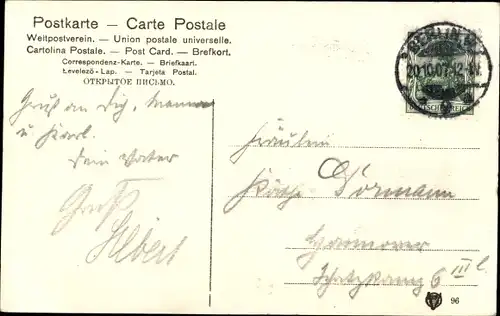 Postkarte — Carte Postale
Weltpostverein. — Union postale universelle.
Cartolina Postale. — Post Card. — Brefkort.
Correspondenz-Karte. — Briefkaart.
Levelező-Lap. — Tarjeta Postal.
ОТКРЫТОЕ ПИСЬМО.
BERLIN
20.10.07.12
Gruß an Dich, Mama
u Karl.
Dein Vater
Gruß
Albert
Fräulein
Käthe Dormann
Hannover
6 III l.
96